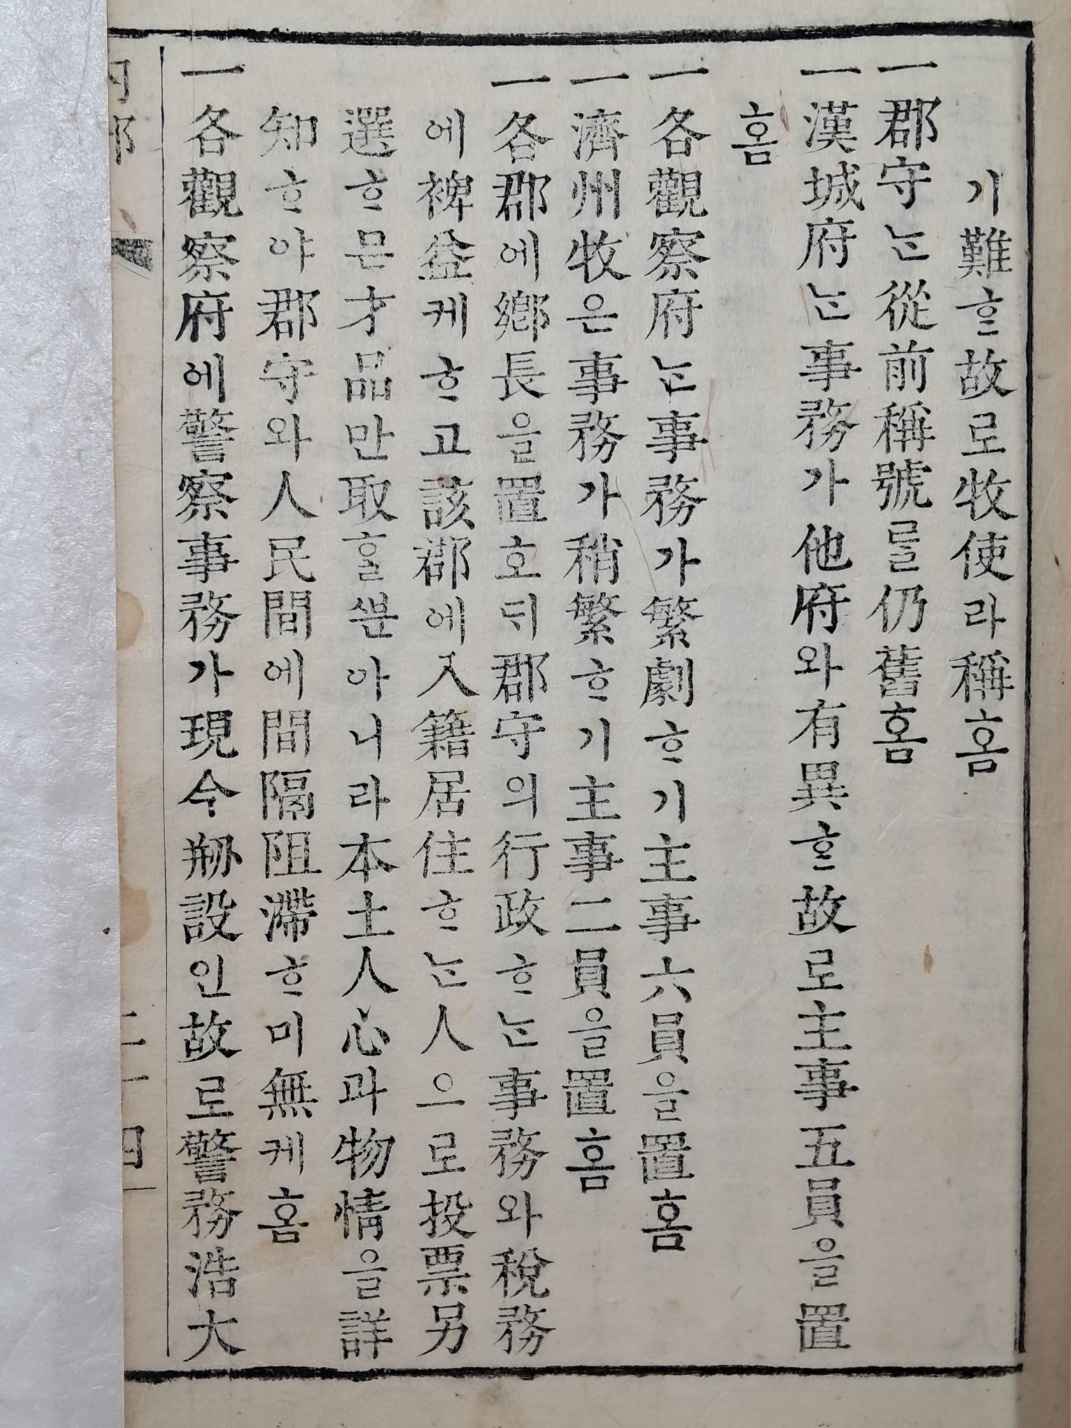 기難ᄒᆞᆫ故로牧使라稱홈
一郡守ᄂᆞᆫ從前稱號ᄅᆞᆯ仍舊홈
一漢城府ᄂᆞᆫ事務가他府와有異ᄒᆞᆫ故로主事五員을置
홈
一各觀察府ᄂᆞᆫ事務가繁劇ᄒᆞ기主事六員을置홈
一濟州牧은事務가稍繁ᄒᆞ기主事二員을置홈
一各郡에鄕長을置호ᄃᆡ郡守의行政ᄒᆞᄂᆞᆫ事務와稅務
에裨益케ᄒᆞ고該郡에入籍居住ᄒᆞᄂᆞᆫ人으로投票另
選ᄒᆞ믄才品만取ᄒᆞᆯᄲᅮᆫ아니라本土人心과物情을詳
知ᄒᆞ야郡守와人民間에間隔阻滯ᄒᆞ미無케홈
一各觀察府에警察事務가現今刱設인故로警務浩大
二十四